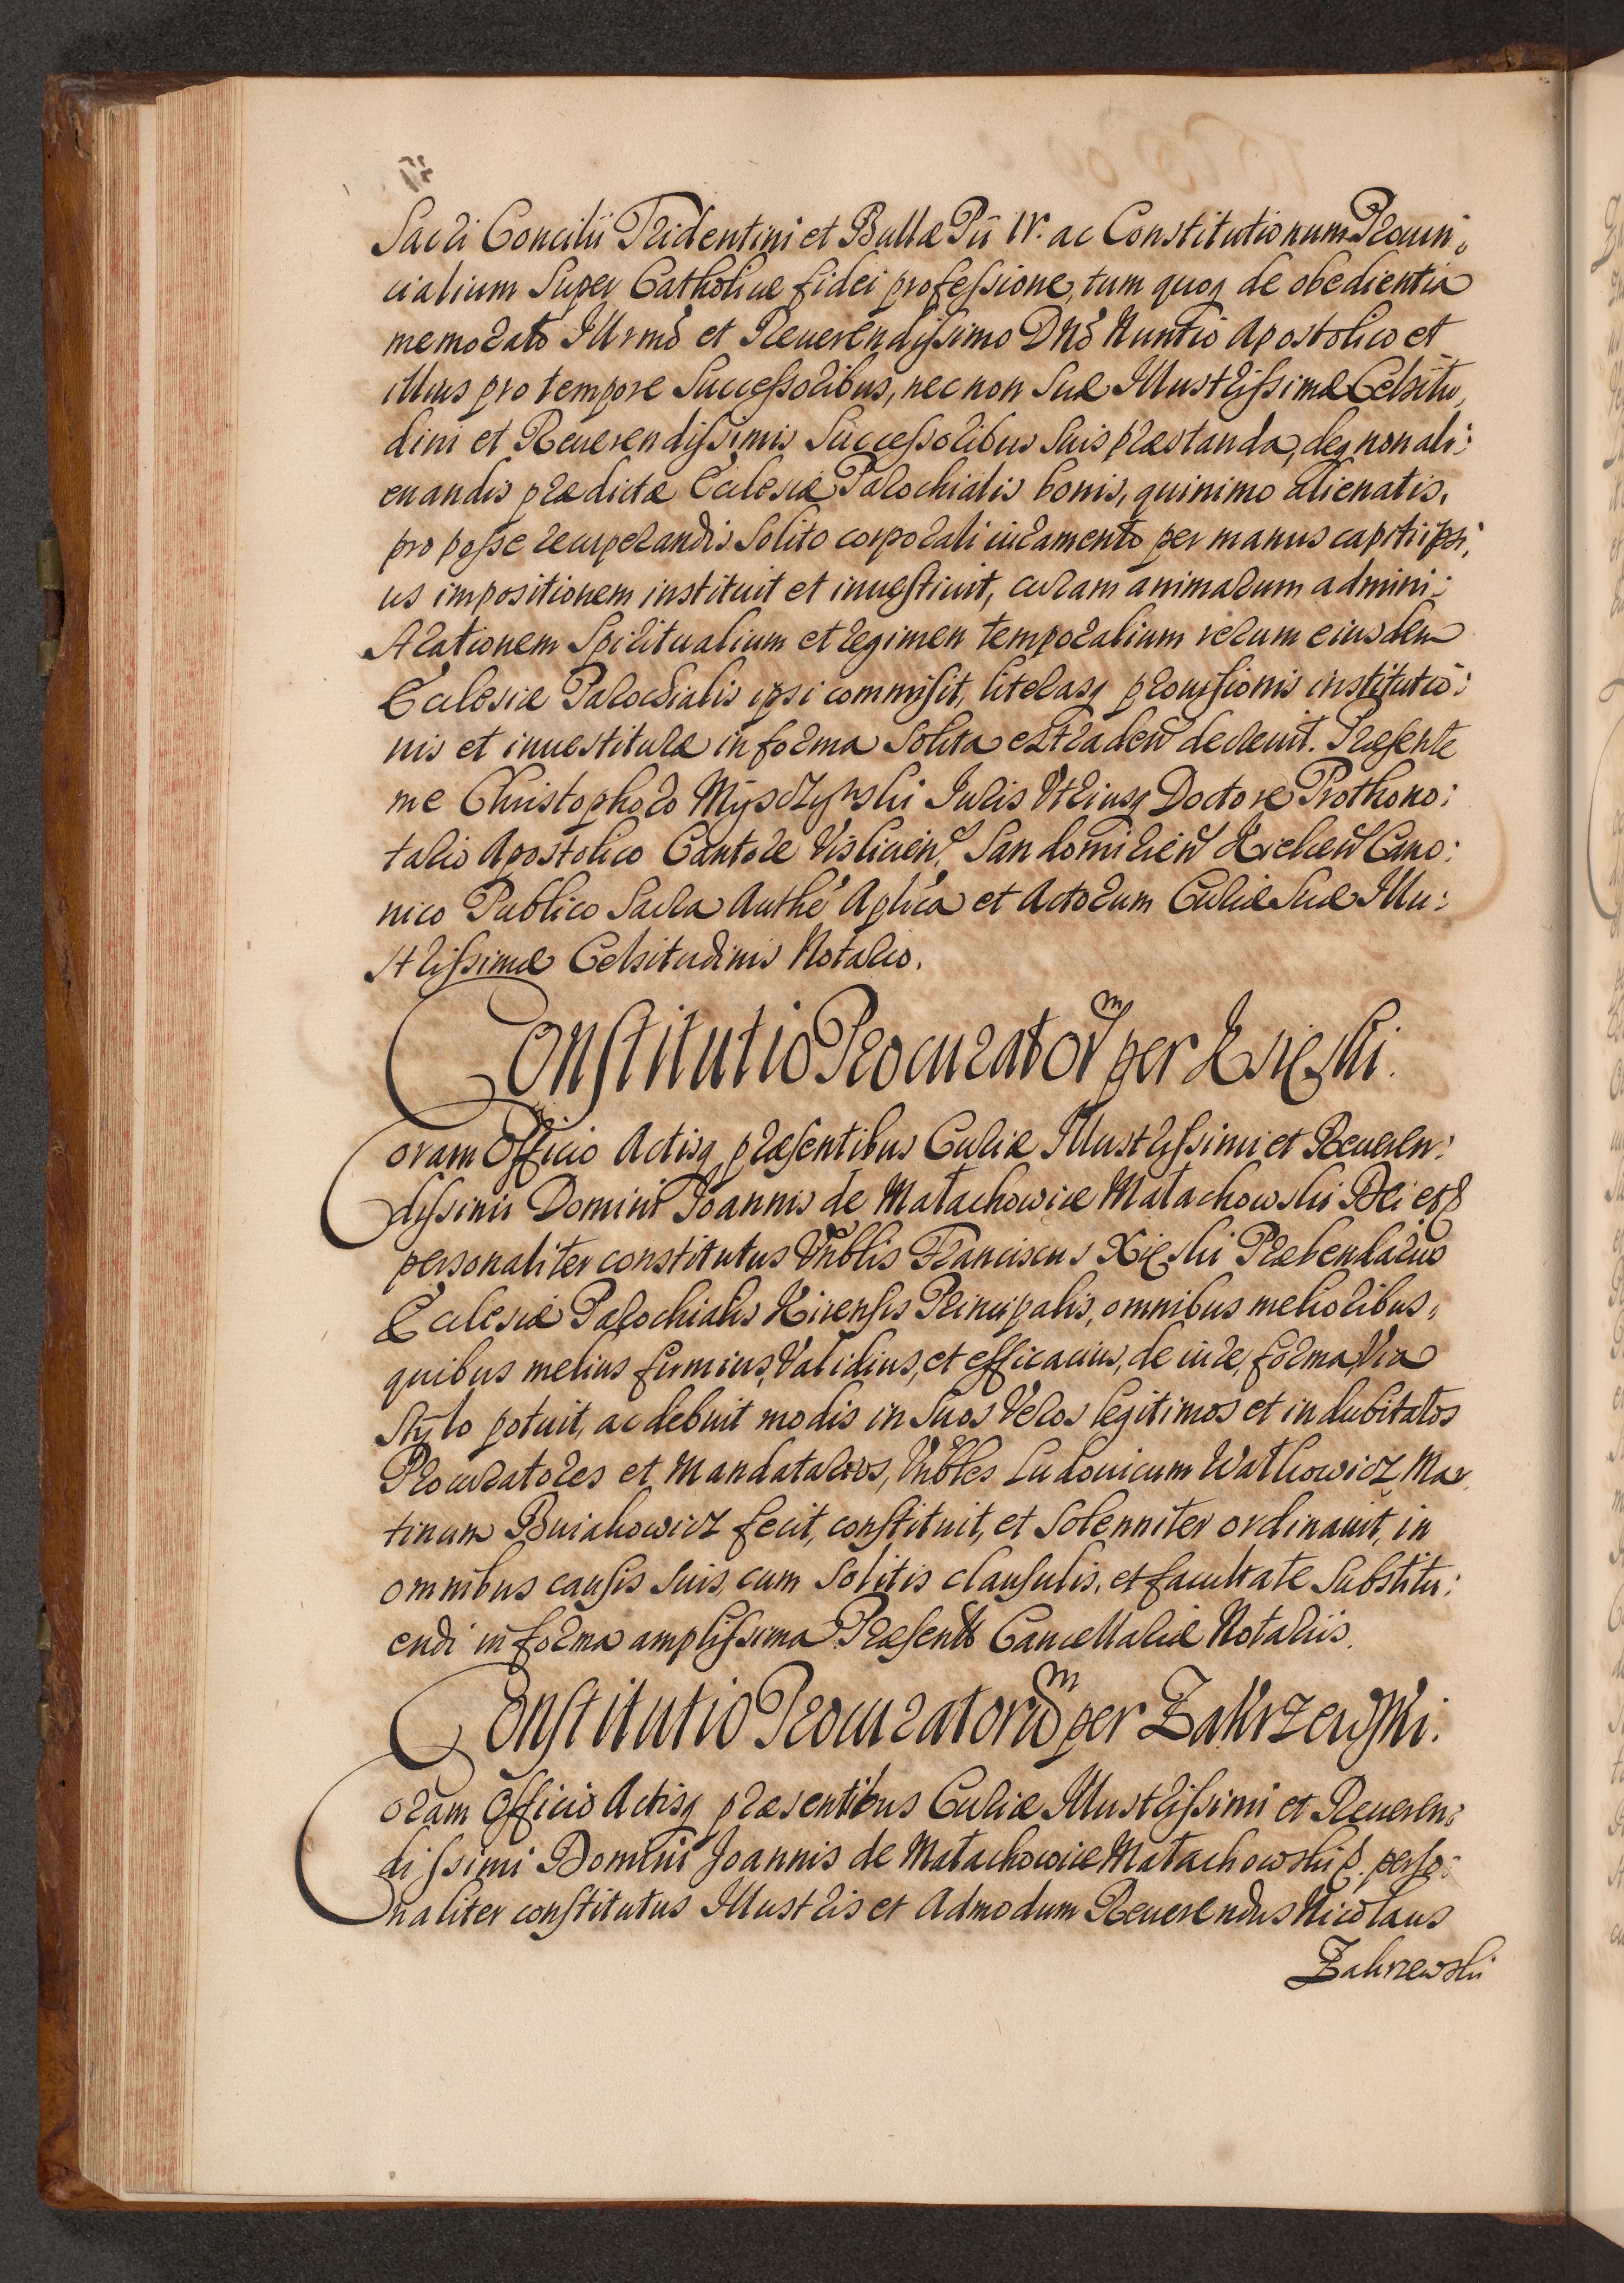 Sacri Concilii Tridentini et Bullæ Pii IV. ac Constitutionum Prouin:
cialium super Catholicæ fidei professione, tum quoq de obedientia
memorato Illrmo et Reuerendissimo Dno Nuntio Apostolico et
illius pro tempore Successoribus, nec non Suæ Illustrissimæ Celsitu,
dini et Reuerendissimis Successoribus Suis præstanda, deq non ali:
enandis prædictæ Ecclesiæ Parochialis bonis, quinimo alienatis,
pro posse recuperandis Solito corporali iuramento per manus capiti ipsi,
us impositionem instituit et inuestiuit, curam animarum admini:
strationem Spiritualium et regimen temporalium rerum eiusdem
Ecclesiæ Parochialis ipsi commisit, literasq prouisionis institutio:
nis et inuestituræ in forma Solita extraden decreuit. Præsente
me Christophoro Mysczynski Iuris Vtriusq Doctore Prothono:
tario Apostolico Cantore Vislicien, Sandomirien Kielcen Cano:
nico Publico Sacra Authe Aplica et Actorum Curiæ Suæ Illu:
strissimæ Celsitudinis Notario.
Constitutio Procuratorm per Xsięski.
Coram Officio Actisq præsentibus Curiæ Illustrissimi et Reueren:
dissimi Domini Joannis de Małachowice Małachowski Dei etc
personaliter constitutus Vnblis Franciscus Xięski Præbendarius
Ecclesiæ Parochialis Xirensis Principalis, omnibus melioribus,
quibus melius firmius, Validius, et efficacius, de iure, forma, Via
Stylo potuit, ac debuit modis in Suos Veros legitimos et indubitatos
Procuratores et Mandatarios, Vnbles Ludouicum Watkowicz Mar
tinum Buiakowicz fecit, constituit, et Solenniter ordinauit, in
omnibus causis Suis, cum Solitis clausulis, et facultate Substitu:
endi in forma amplissima. Præsentb Cancellariæ Notariis.
Constitutio Procuratorum per Zakrzewski.
Coram Officio Actisq præsentibus Curiæ Illustrissimi et Reueren:
dissimi Domini Joannis de Małachowice Małachowski etc. perso:
naliter constitutus Illustris et Admodum Reuerendus Nicolaus
Zakrzewski